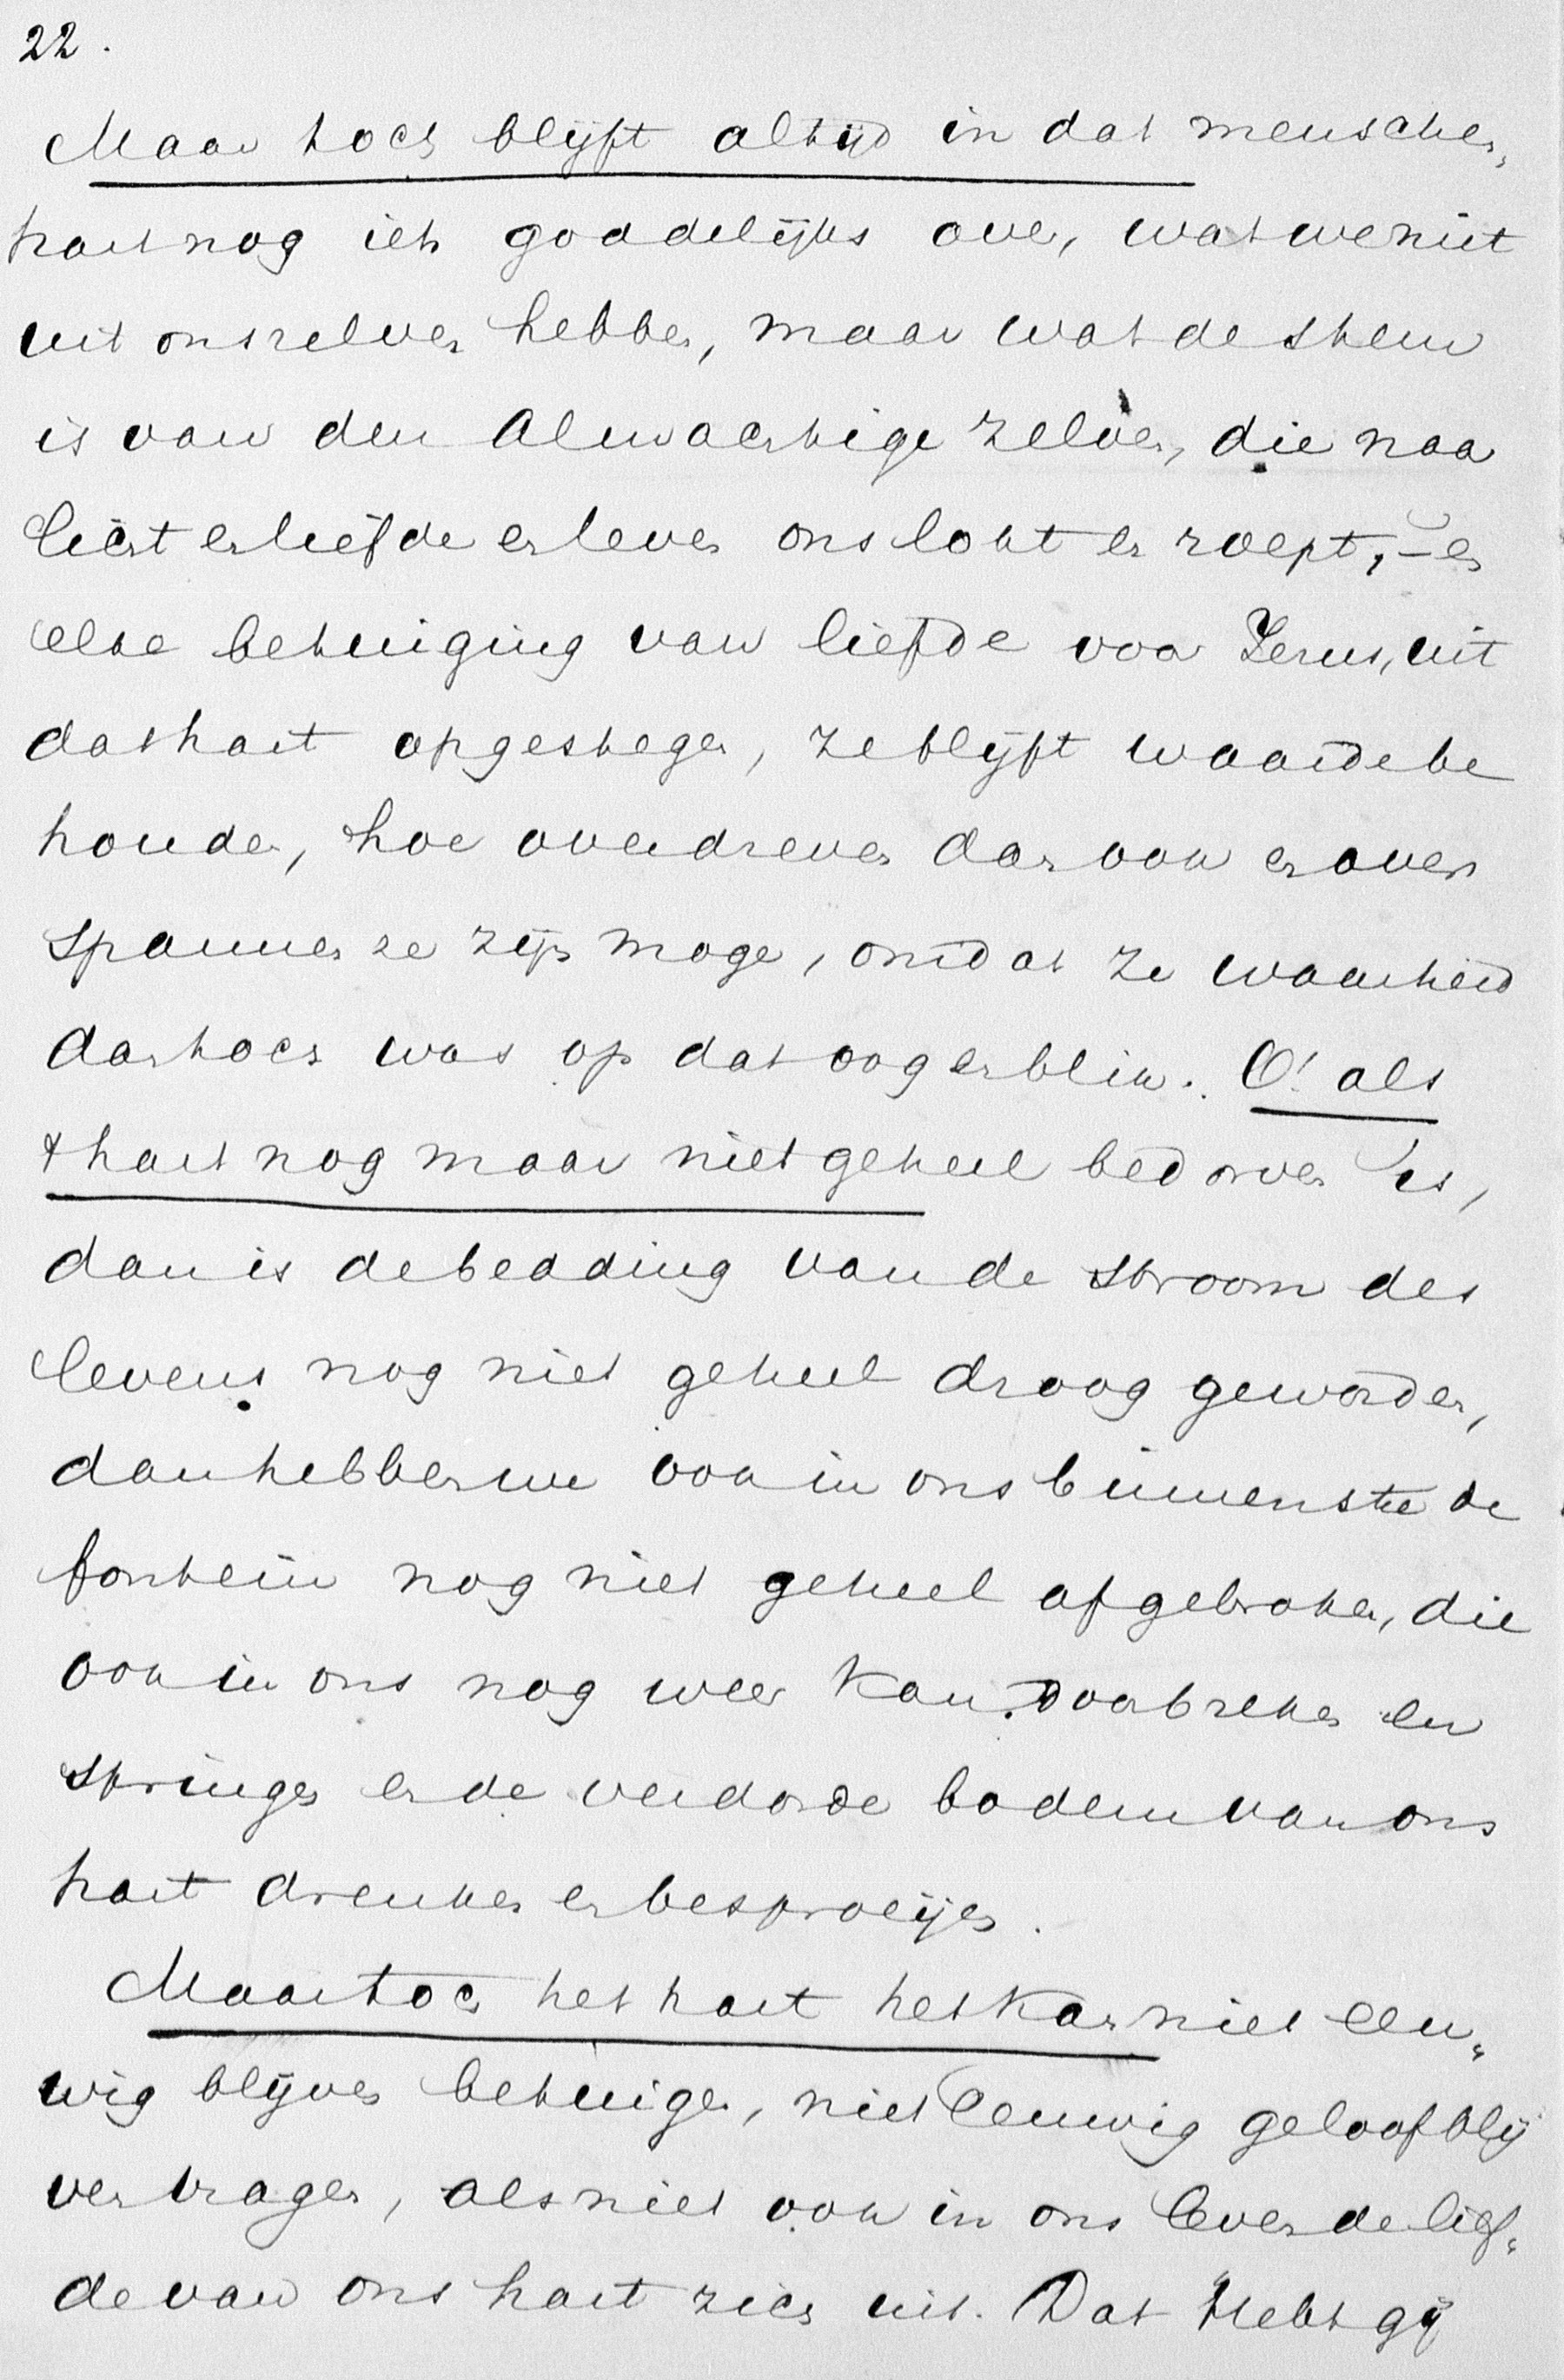 22.
Maar toch blijft altijd in dat menschen„
hart nog iets goddelijks over, wat we niet
uit onszelven hebben, maar wat de stem
is van den Almachtige zelven, die naar
licht en liefde en leven ons lokt en roept, – en
elke betuiging van liefde voor Jezus, uit
dat hart opgestegen, ze blijft waarde be
houden, hoe overdreven dan ook en over
spannen ze zijn moge, omdat ze waarheid
dan toch was op dat oogenblik. O! als
't hart nog maar niet geheel bedorven is,
dan is de bedding van de stroom des
levens nog niet geheel droog geworden,
dan hebben we ook in ons binnenste de
fontein nog niet geheel afgebroken, die
ook in ons nog weer kan doorbreken en
springen en de verdorde bodem van ons
hart drenken en besproeijen.
Maar toch het hart het kan niet eeu„
wig blijven betuigen, niet eeuwig geloof blij
ven vragen, als niet ook in ons leven de lief„
de van ons hart zich uit. Dat Hebt gij